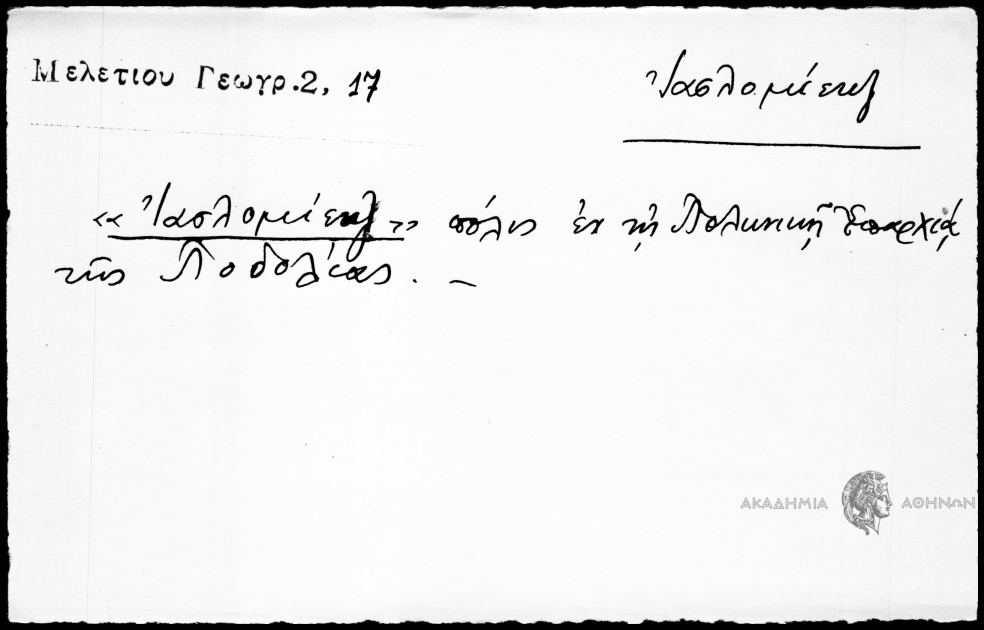 Μελετιου Γεωγρ.2, 17
Ἰασλομίεντζ
« Ἰασλομίεντζ » πόλις ἐν τῇ Πολωνικῇ Ἐπαρχίᾳ
τῆς Ποδολίας . –
ΑΚΑΔΗΜΙΑ ΑΘΗΝΩΝ